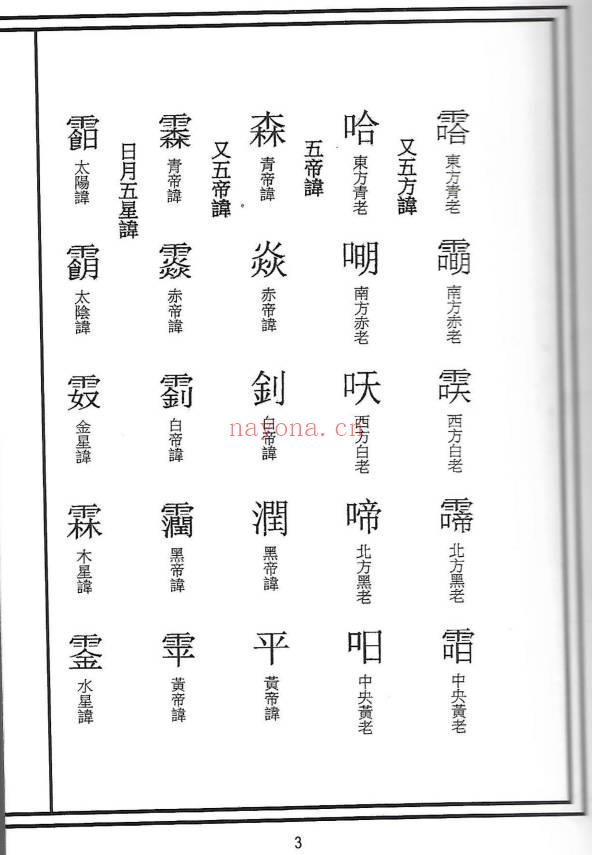 東方青老
南方赤老
西方白老
北方黑老
中央黃老
又五方諱
哈 東方青老
南方赤老
西方白老
啼 北方黑老
中央黃老
五帝諱
森 青帝諱
焱 赤帝諱
釗 白帝諱
潤 黑帝諱
平 黃帝諱
又五帝諱。
青帝諱
赤帝諱
白帝諱
黑帝諱
黃帝諱
日月五星諱
太陽諱
太陰諱
金星諱
霖 木星諱
水星諱
nayona.cn
3